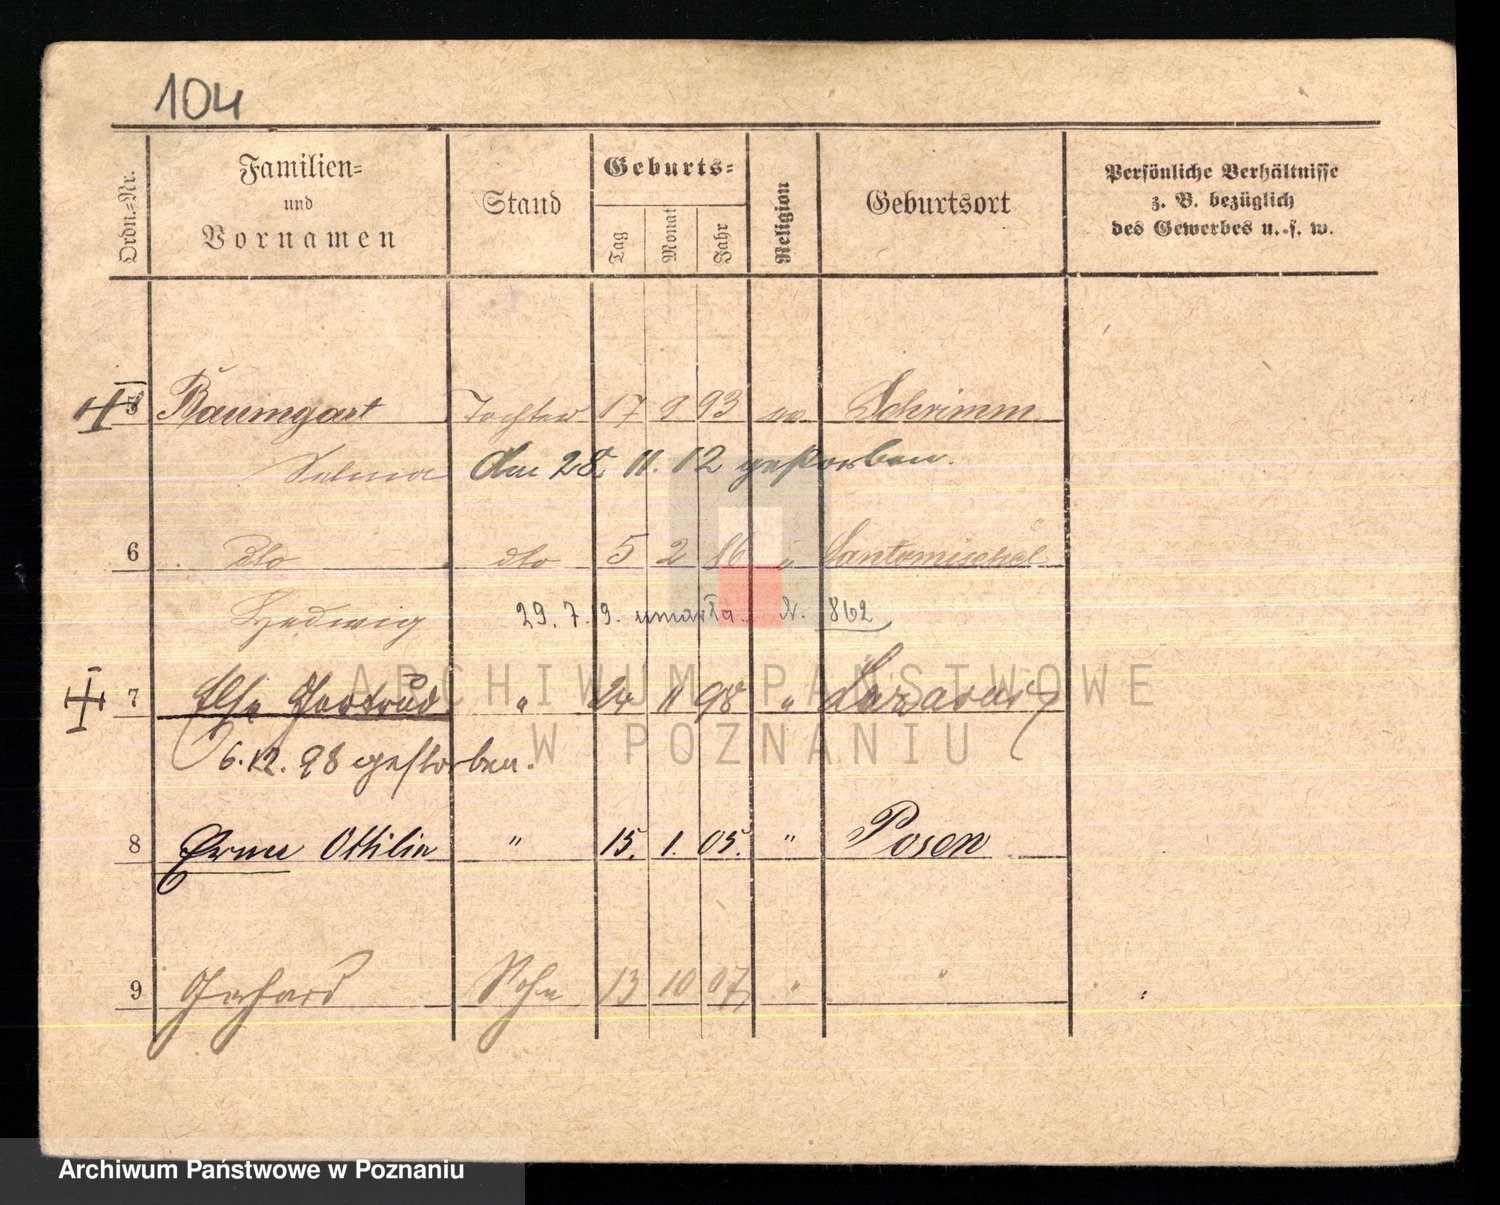 104
Ordn.-Nr.
Familien-
und
Vornamen
Stand
Geburts-
Tag
Monat
Jahr
Religion
Geburtsort
Persönliche Verhältnisse
z. B. bezüglich
des Gewerbes u. s. w.
5 Baumgart Tochter 17 9 93 ev. Schrimm
Selma den 28. 11. 12 gestorben.
6 dto dto 5 2 86 " Santomischel
Hedwig 29. 7. 19. umarła. N. 862
7 Else Gertrud " 24 11 98 " Lazarus
6. 12. 98 gestorben.
8 Erna Ottilie " 15. 1. 05. " Posen
9 Gerhard Sohn 13 10 07 " "
ARCHIWUM PAŃSTWOWE
W POZNANIU
Archiwum Państwowe w Poznaniu